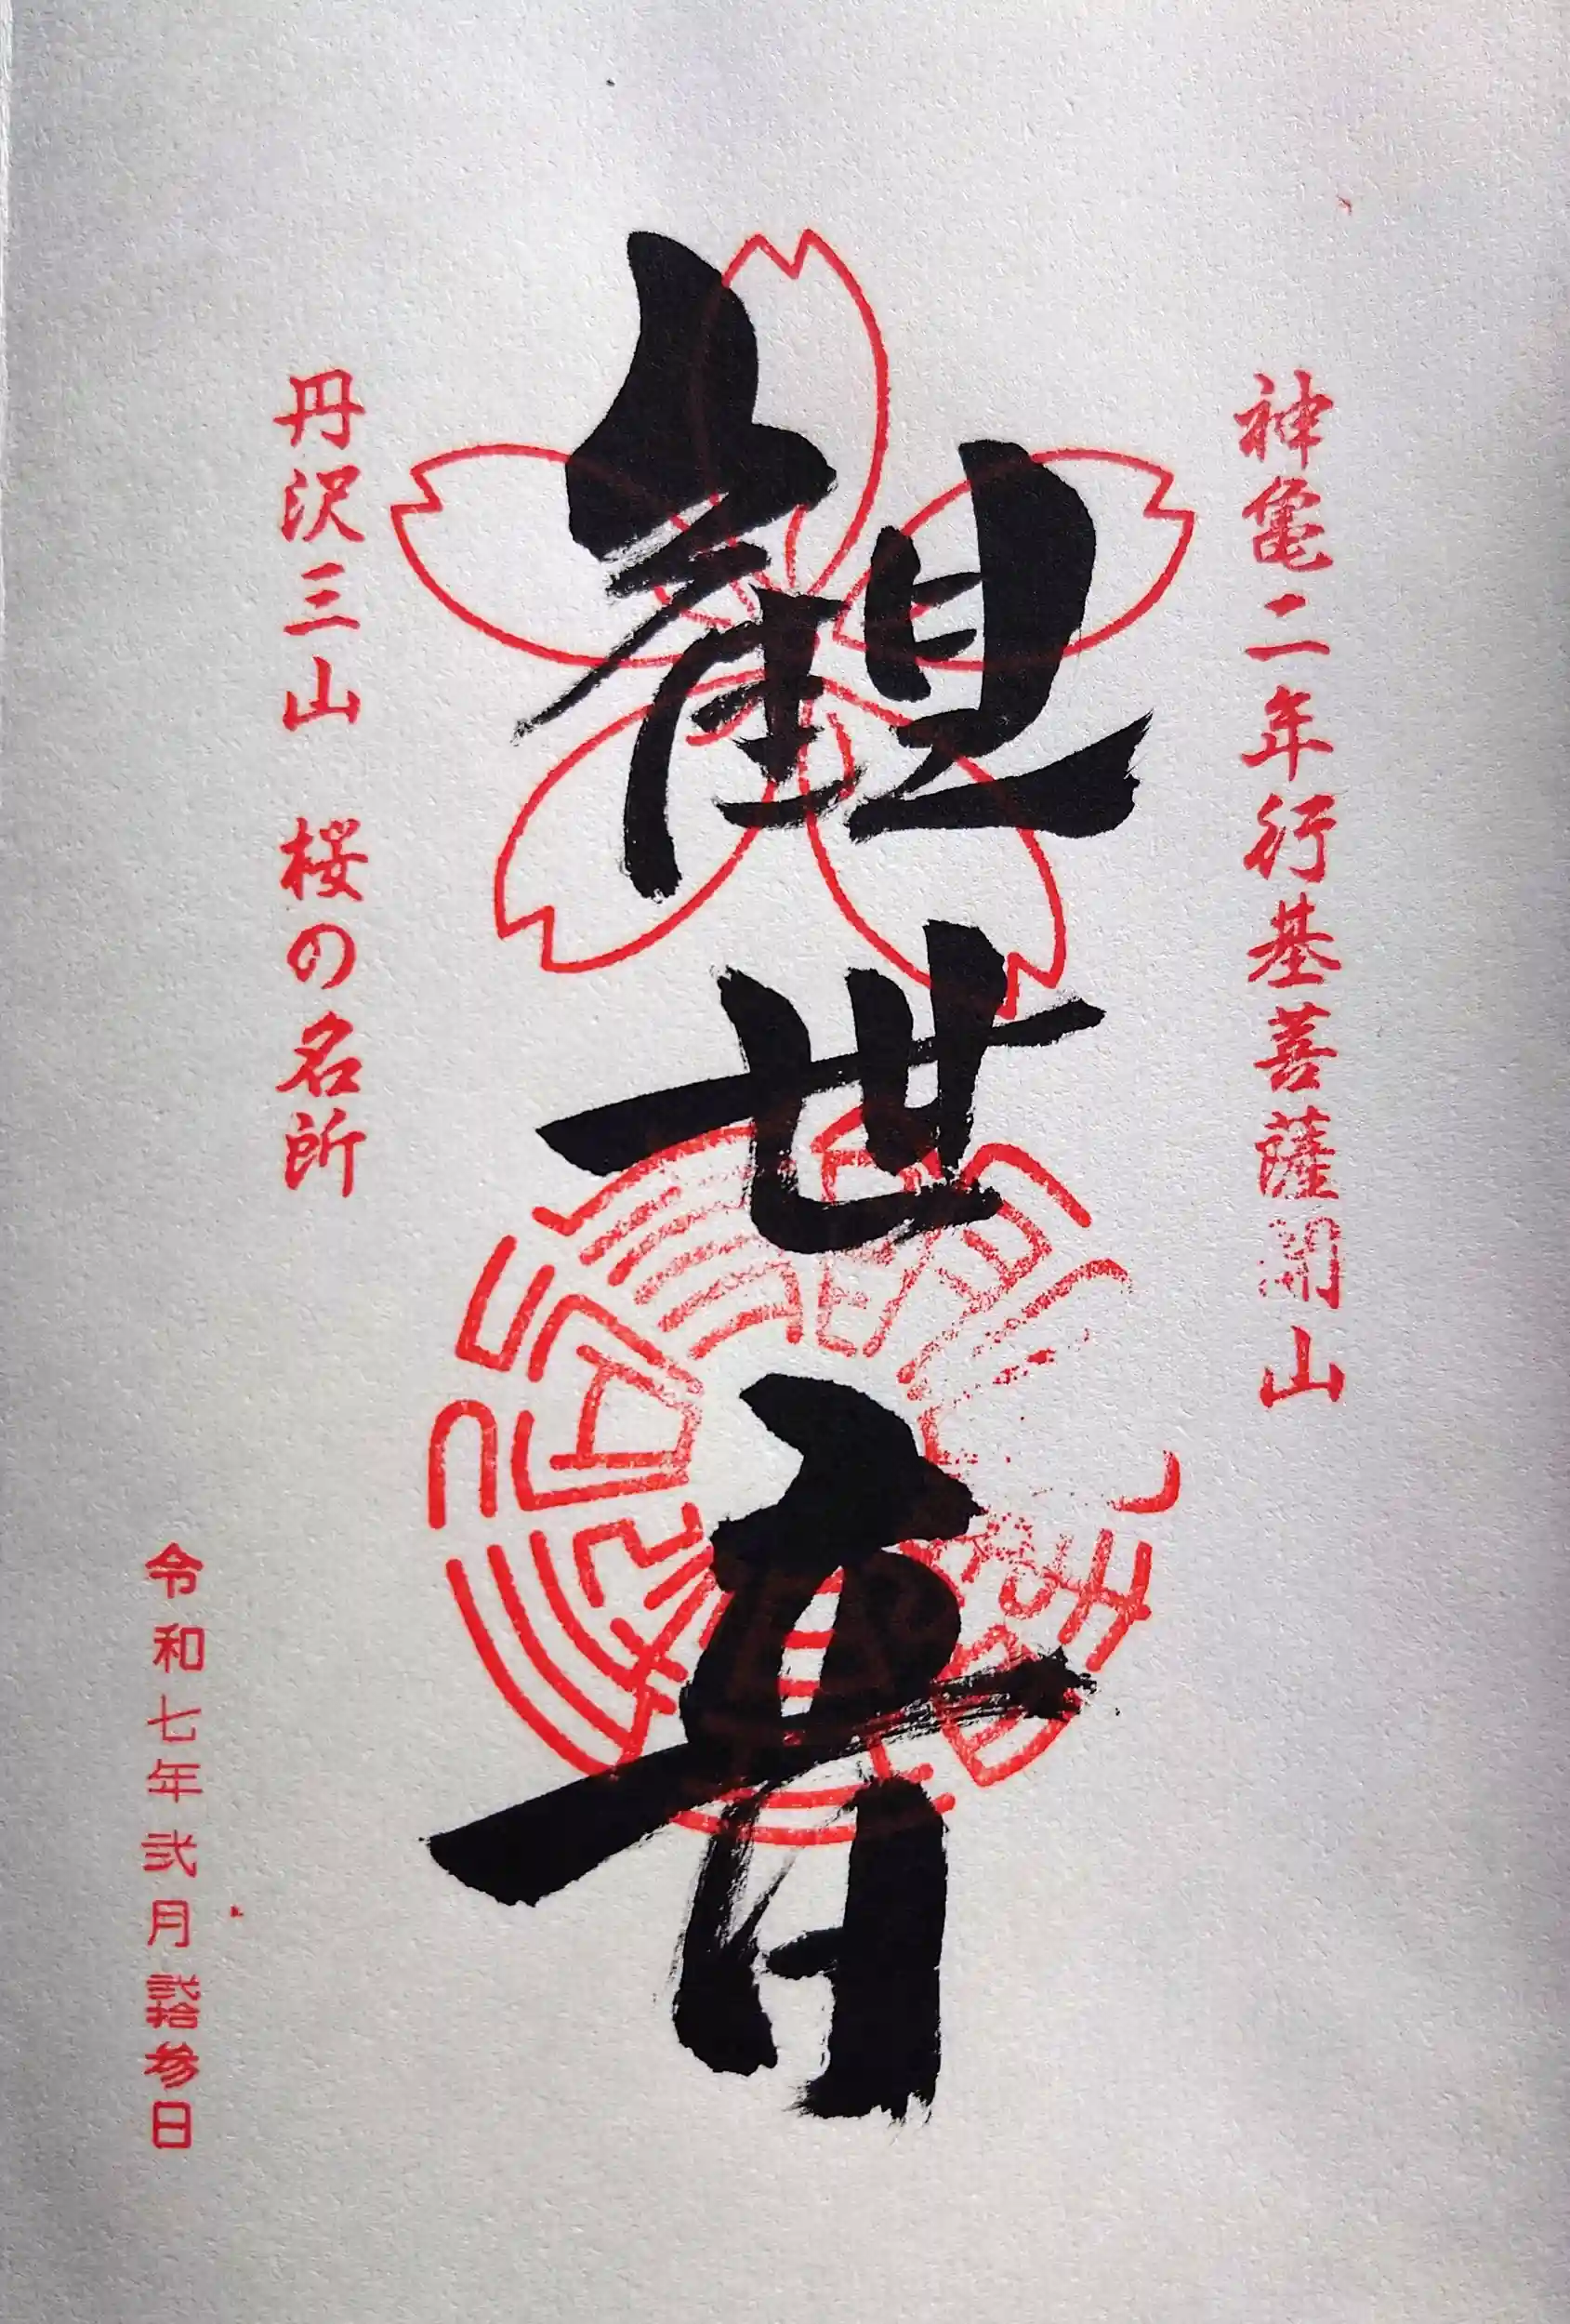 神亀二年行基菩薩開山
観世音
丹沢三山 桜の名所
令和七年弐月弐拾参日